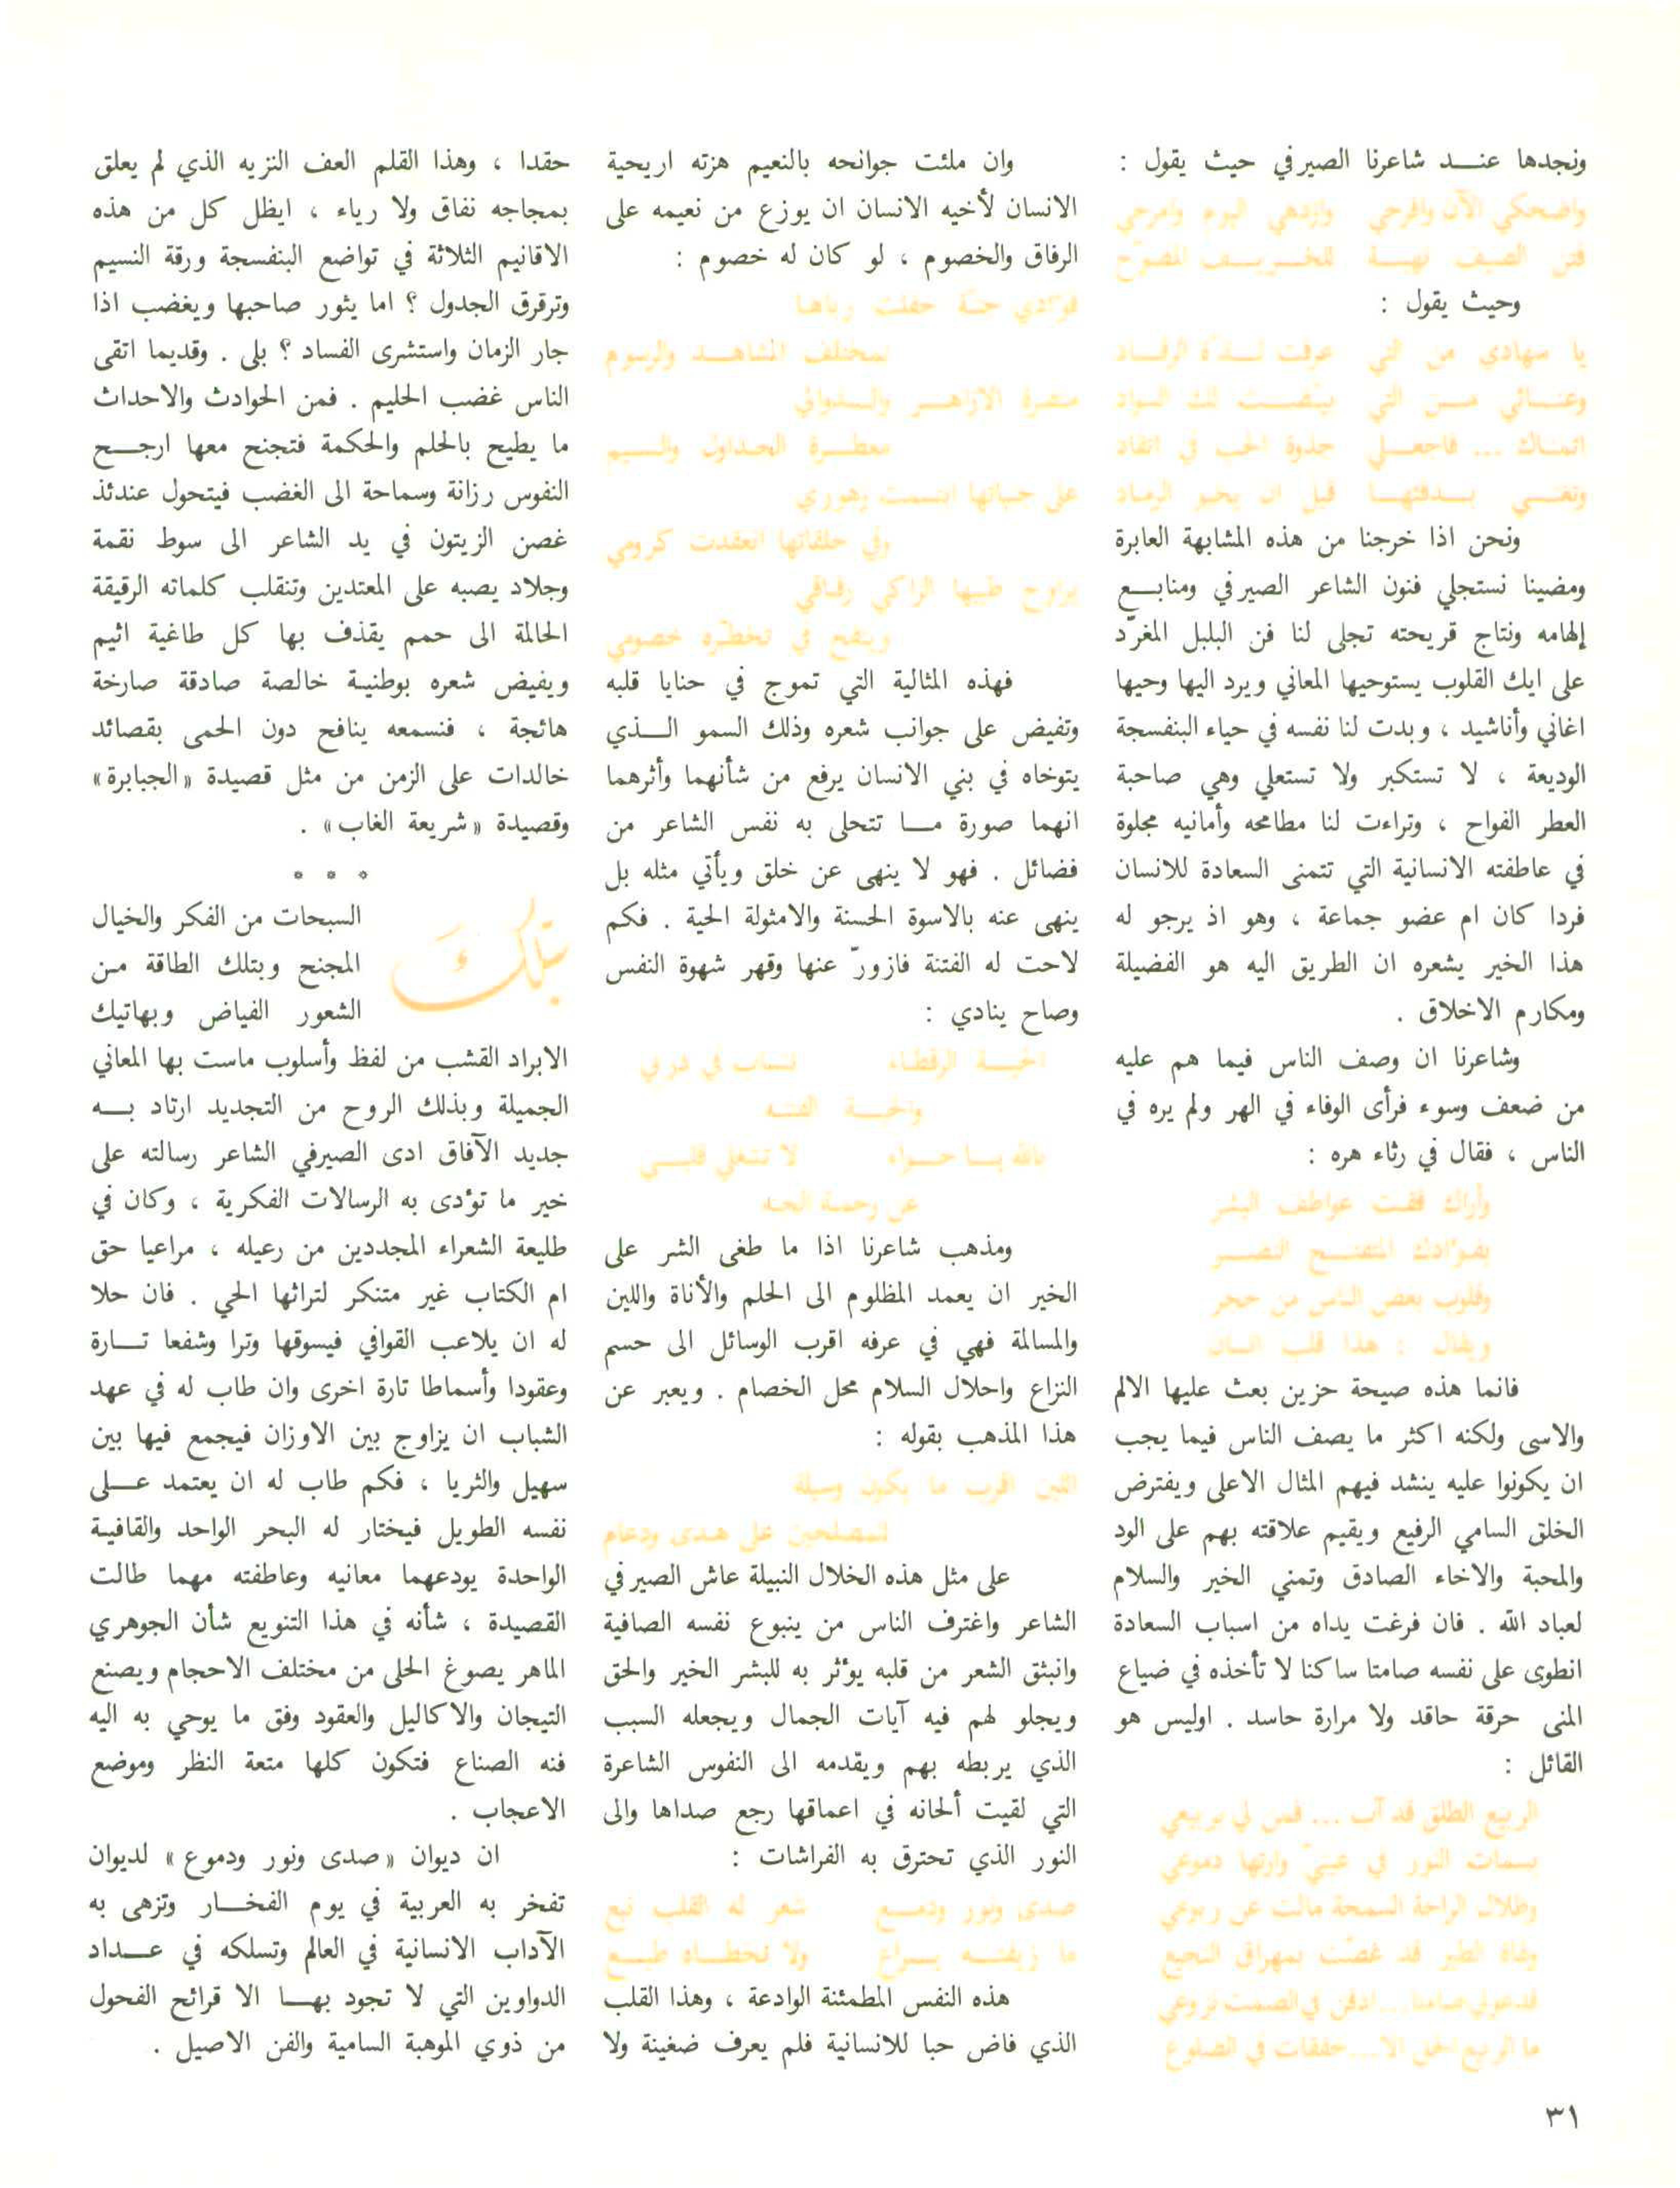 ونجدها عنـــد شاعرنا الصيرفي حيث يقول :
واضحكي الآن وافرحي وازدهي اليوم وامرحي
وحيث يقول :
يا سهادي من التي عرفت لـــذة الرقـــاد
ونحن اذا خرجنا من هذه المشابهة العابرة
ومضينا نستجلي فنون الشاعر الصيرفي ومنابـــع
إلهامه ونتاج قريحته تجلى لنا فن البلبل المغرّد
على ايك القلوب يستوحيها المعاني ويرد اليها وحيها
اغاني وأناشيد ، وبدت لنا نفسه في حياء البنفسجة
الوديعة ، لا تستكبر ولا تستعلي وهي صاحبة
العطر الفواح ، وتراءت لنا مطامحه وأمانيه مجلوة
في عاطفته الانسانية التي تتمنى السعادة للانسان
فردا كان ام عضو جماعة ، وهو اذ يرجو له
هذا الخير يشعره ان الطريق اليه هو الفضيلة
ومكارم الاخلاق .
وشاعرنا ان وصف الناس فيما هم عليه
من ضعف وسوء فرأى الوفاء في الهر ولم يره في
الناس ، فقال في رثاء هره :
وأراك فقت عواطف البشر
بفؤادك المتفتـــح النضـــر
وقلوب بعض الناس من حجر
ويقال : هذا قلب انسان
فانما هذه صيحة حزين بعث عليها الالم
والاسى ولكنه اكثر ما يصف الناس فيما يجب
ان يكونوا عليه ينشد فيهم المثال الاعلى ويفترض
الخلق السامي الرفيع ويقيم علاقته بهم على الود
والمحبة والاخاء الصادق وتمني الخير والسلام
لعباد الله . فان فرغت يداه من اسباب السعادة
انطوى على نفسه صامتا ساكنا لا تأخذه في ضياع
المنى حرقة حاقد ولا مرارة حاسد . اوليس هو
القائل :
الربيع الطلق قد آب ... فمن لي بربيعي
بسمات النور في عينيّ وارتها دموعي
وظلال الراحة السمحة مالت عن ربوعي
فدعوني صامتا... ادفن في الصمت نزوعي
وان ملئت جوانحه بالنعيم هزته اريحية
الانسان لأخيه الانسان ان يوزع من نعيمه على
الرفاق والخصوم ، لو كان له خصوم :
فؤادي جنة حفلت رباها
بمختلف المشاهـــد والرسوم
معطـــرة الجداول والنسيم
وفي حلقاتها انعقدت كرومي
يراوح طيبها الزاكي رفاقي
وينفح في تخطّره خصومي
فهذه المثالية التي تموج في حنايا قلبه
وتفيض على جوانب شعره وذلك السمو الـــذي
يتوخاه في بني الانسان يرفع من شأنهما وأثرهما
انهما صورة مـــا تتحلى به نفس الشاعر من
فضائل . فهو لا ينهى عن خلق ويأتي مثله بل
ينهى عنه بالاسوة الحسنة والامثولة الحية . فكم
لاحت له الفتنة فازورّ عنها وقهر شهوة النفس
وصاح ينادي :
الحيـــة الرقطـاء تنساب في دربي
بالله يـــا حـــواء لا تشغلي قلبـــي
عن رحمة الجنه
ومذهب شاعرنا اذا ما طغى الشر على
الخير ان يعمد المظلوم الى الحلم والأناة واللين
والمسالمة فهي في عرفه اقرب الوسائل الى حسم
النزاع واحلال السلام محل الخصام . ويعبر عن
هذا المذهب بقوله :
اللين اقرب ما يكون وسيلة
للمصلحين على هـدى ودعام
على مثل هذه الخلال النبيلة عاش الصيرفي
الشاعر واغترف الناس من ينبوع نفسه الصافية
وانبثق الشعر من قلبه يؤثر به للبشر الخير والحق
ويجلو لهم فيه آيات الجمال ويجعله السبب
الذي يربطه بهم ويقدمه الى النفوس الشاعرة
التي لقيت ألحانه في اعماقها رجع صداها والى
النور الذي تحترق به الفراشات :
صدى ونور ودمـــع شعر له القلب نبع
ما زيفتـــه يـــراع ولا تخطـــاه طبـــع
هذه النفس المطمئنة الوادعة ، وهذا القلب
الذي فاض حبا للانسانية فلم يعرف ضغينة ولا
حقدا ، وهذا القلم العف النزيه الذي لم يعلق
بمجاجه نفاق ولا رياء ، ايظل كل من هذه
الاقانيم الثلاثة في تواضع البنفسجة ورقة النسيم
وترقرق الجدول ؟ اما يثور صاحبها ويغضب اذا
جار الزمان واستشرى الفساد ؟ بلى . وقديما اتقى
الناس غضب الحليم . فمن الحوادث والاحداث
ما يطيح بالحلم والحكمة فتجنح معها ارجـــح
النفوس رزانة وسماحة الى الغضب فيتحول عندئذ
غصن الزيتون في يد الشاعر الى سوط نقمة
وجلاد يصبه على المعتدين وتنقلب كلماته الرقيقة
الحالمة الى حمم يقذف بها كل طاغية اثيم
ويفيض شعره بوطنية خالصة صادقة صارخة
هائجة ، فنسمعه ينافح دون الحمى بقصائد
خالدات على الزمن من مثل قصيدة «الجبابرة»
وقصيدة «شريعة الغاب» .
* * *
بتلك السبحات من الفكر والخيال
المجنح وبتلك الطاقة من
الشعور الفياض وبهاتيك
الابراد القشب من لفظ وأسلوب ماست بها المعاني
الجميلة وبذلك الروح من التجديد ارتاد بـــه
جديد الآفاق ادى الصيرفي الشاعر رسالته على
خير ما تؤدى به الرسالات الفكرية ، وكان في
طليعة الشعراء المجددين من رعيله ، مراعيا حق
ام الكتاب غير متنكر لتراثها الحي . فان حلا
له ان يلاعب القوافي فيسوقها وترا وشفعا تـــارة
وعقودا وأسماطا تارة اخرى وان طاب له في عهد
الشباب ان يزاوج بين الاوزان فيجمع فيها بين
سهيل والثريا ، فكم طاب له ان يعتمد عـــلى
نفسه الطويل فيختار له البحر الواحد والقافية
الواحدة يودعهما معانيه وعاطفته مهما طالت
القصيدة ، شأنه في هذا التنويع شأن الجوهري
الماهر يصوغ الحلى من مختلف الاحجام ويصنع
التيجان والاكاليل والعقود وفق ما يوحي به اليه
فنه الصناع فتكون كلها متعة النظر وموضع
الاعجاب .
ان ديوان «صدى ونور ودموع» لديوان
تفخر به العربية في يوم الفخـــار وتزهى به
الآداب الانسانية في العالم وتسلكه في عـــداد
الدواوين التي لا تجود بهـــا الا قرائح الفحول
من ذوي الموهبة السامية والفن الاصيل .
٣١